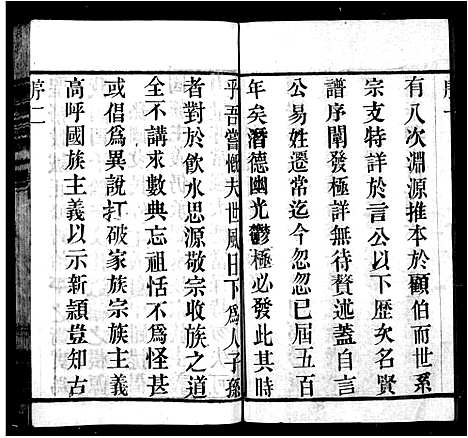 序一
有八次淵源推本於顧伯而世系
宗支特詳於言公以下歷矣名賢
譜序闡發極詳無待贅述蓋自言
公易姓遷常迄今忽忽已屆五百
年矣潛德幽光鬱極必發此其時
乎吾嘗慨夫世風日下為人子孫
者對於飲水思源敬宗收族之道
全不講求數典忘祖恬不為怪甚
或倡為異說打破家族宗族主義
高呼國族主義以示新穎豈知古
序二